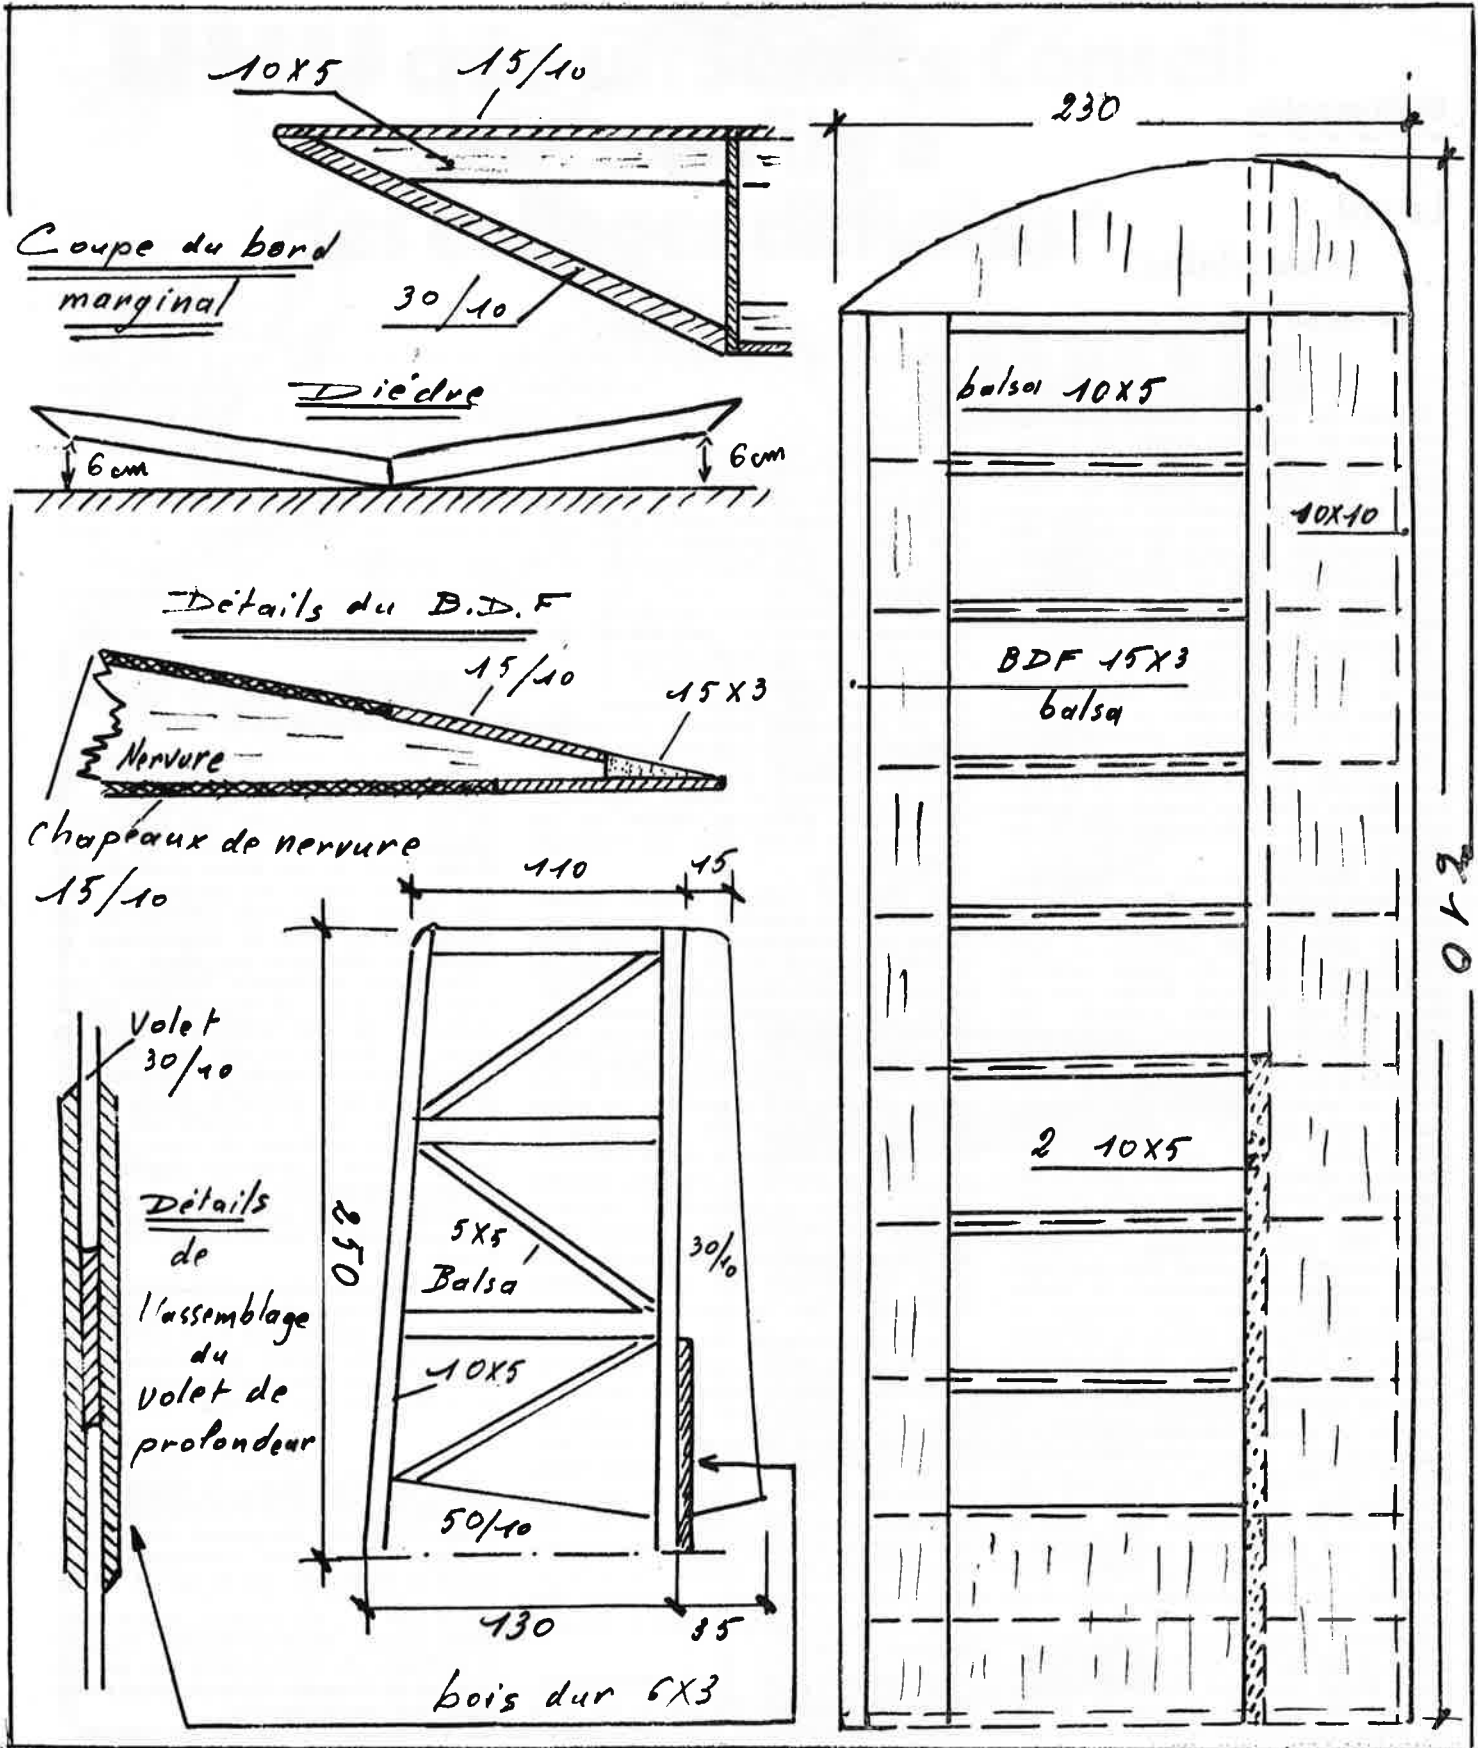 10X5
15/10
Coupe du bord
marginal
30/10
Dièdre
6 cm
6 cm
Détails du B.D.F
15/10
15X3
Nervure
Chapeaux de nervure
15/10
110
15
Volet
30/10
Détails
de
l'assemblage
du
volet de
profondeur
250
5X5
Balsa
30/10
10X5
50/10
130
35
bois dur 6X3
230
balsa 10X5
10X10
BDF 15X3
balsa
2 10X5